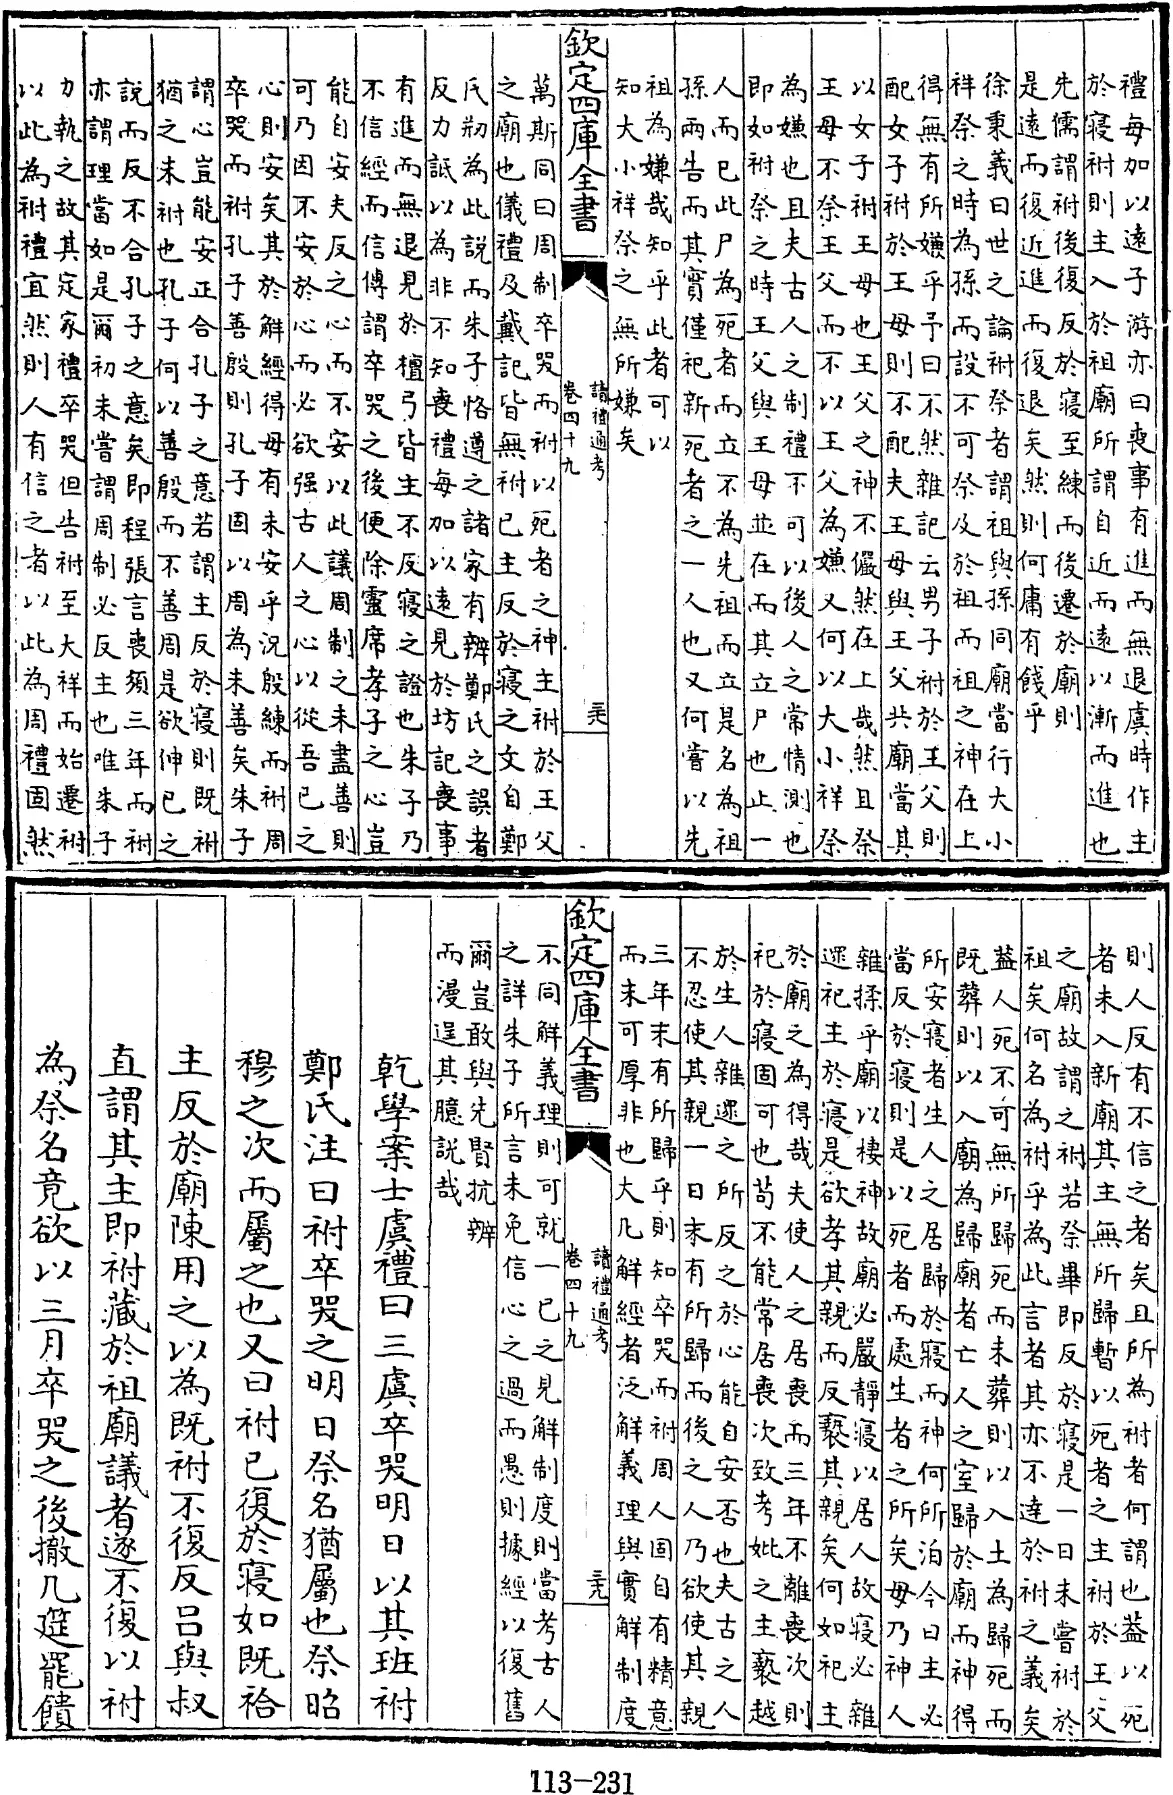 禮每加以遠子游亦曰喪事有進而無退虞時作主
於寢祔則主入於祖廟所謂自近而遠以漸而進也
先儒謂祔後復反於寢至練而後遷於廟則
是遠而復近進而復退矣然則何庸有餞乎
徐秉義曰世之論祔祭者謂祖與孫同廟當行大小
祥祭之時為孫而設不可祭及於祖而祖之神在上
得無有所嫌乎予曰不然雜記云男子祔於王父則
配女子祔於王母則不配夫王母與王父共廟當其
以女子祔王母也王父之神不儼然在上哉然且祭
王母不祭王父而不以王父為嫌又何以大小祥祭
為嫌也且夫古人之制禮不可以後人之常情測也
即如祔祭之時王父與王母並在而其立尸也止一
人而已此尸為死者而立不為先祖而立是名為祖
孫兩告而其實僅祀新死者之一人也又何嘗以先
祖為嫌哉知乎此者可以
知大小祥祭之無所嫌矣
欽定四庫全書
讀禮通考
卷四十九
三十九
萬斯同曰周制卒哭而祔以死者之神主祔於王父
之廟也儀禮及戴記皆無祔已主反於寢之文自鄭
氏剏為此說而朱子恪遵之諸家有辨鄭氏之誤者
反力詆以為非不知喪禮每加以遠見於坊記喪事
有進而無退見於檀弓皆主不反寢之證也朱子乃
不信經而信傳謂卒哭之後便除靈席孝子之心豈
能自安夫反之心而不安以此議周制之未盡善則
可乃因不安於心而必欲强古人之心以從吾已之
心則安矣其於解經得毋有未安乎況殷練而祔周
卒哭而祔孔子善殷則孔子固以周為未善矣朱子
謂心豈能安正合孔子之意若謂主反於寢則既祔
猶之未祔也孔子何以善殷而不善周是欲伸已之
說而反不合孔子之意矣即程張言喪須三年而祔
亦謂理當如是爾初未嘗謂周制必反主也唯朱子
力執之故其定家禮卒哭但告祔至大祥而始遷祔
以此為祔禮宜然則人有信之者以此為周禮固然
則人反有不信之者矣且所為祔者何謂也葢以死
者未入新廟其主無所歸暫以死者之主祔於王父
之廟故謂之祔若祭畢即反於寢是一日未嘗祔於
祖矣何名為祔乎為此言者其亦不達於祔之義矣
葢人死不可無所歸死而未葬則以入土為歸死而
既葬則以入廟為歸廟者亡人之室歸於廟而神得
所安寢者生人之居歸於寢而神何所泊今日主必
當反於寢則是以死者而處生者之所矣毋乃神人
雜揉乎廟以棲神故廟必嚴靜寢以居人故寢必雜
遝祀主於寢是欲孝其親而反褻其親矣何如祀主
於廟之為得哉夫使人之居喪而三年不離喪次則
祀於寢固可也苟不能常居喪次致考妣之主褻越
於生人雜遝之所反之於心能自安否也夫古之人
不忍使其親一日未有所歸而後之人乃欲使其親
三年末有所歸乎則知卒哭而祔周人固自有精意
而未可厚非也大凡解經者泛解義理與實解制度
欽定四庫全書
讀禮通考
卷四十九
三十九
不同解義理則可就一已之見解制度則當考古人
之詳朱子所言未免信心之過而愚則據經以復舊
爾豈敢與先賢抗辨
而漫逞其臆說哉
乾學案士虞禮曰三虞卒哭明日以其班祔
鄭氏注曰祔卒哭之明日祭名猶屬也祭昭
穆之次而屬之也又曰祔已復於寢如既祫
主反於廟陳用之以為既祔不復反呂與叔
直謂其主即祔藏於祖廟議者遂不復以祔
為祭名竟欲以三月卒哭之後撤几筵罷饋
113-231